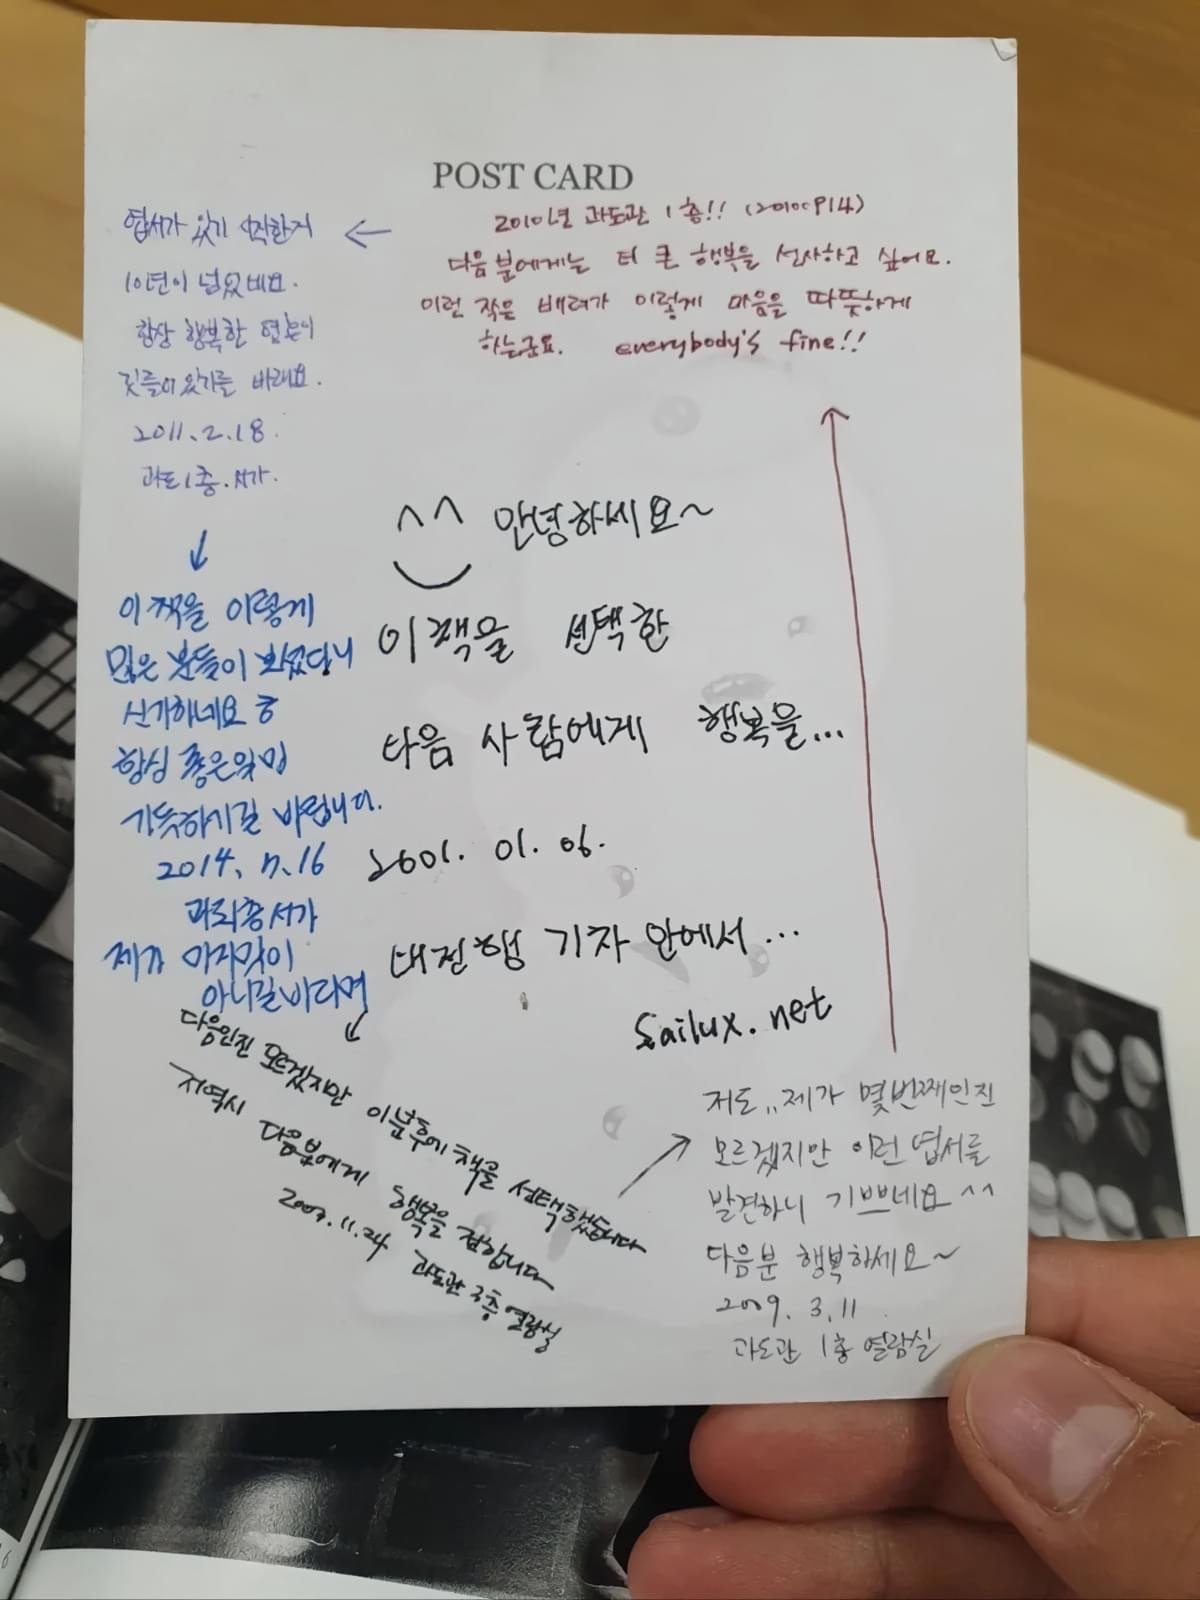 POST CARD
2010년 과도관 1층!! (20100914)
다음 분에게는 더 큰 행복을 선사하고 싶어요.
이런 작은 배려가 이렇게 마음을 따뜻하게
하는군요. everybody's fine!!
엽서가 있기 시작한지
10년이 넘었네요.
항상 행복한
있기를 바래요.
2011.2.18.
과도1층.서가.
^^ 안녕하세요~
이 책을 선택한
다음 사람에게 행복을...
2001. 01. 06.
대전행 기차 안에서...
sailux.net
이 책을 이렇게
많은 분들이 보셨답니
신기하네요 ㅎ
항상 좋은일만
가득하시길 바랍니다.
2014. 7. 16
서가
제가 마지막이
아니길 바라며
다음인진 모르겠지만 이분후에 책을 선택했습니다
저 역시 다음분에게 행복을 전합니다
2007.11.24 과도관 3층 열람실
저도..제가 몇번째인진
모르겠지만 이런 엽서를
발견하니 기쁘네요 ^^
다음분 행복하세요~
2009. 3. 11
과도관 1층 열람실